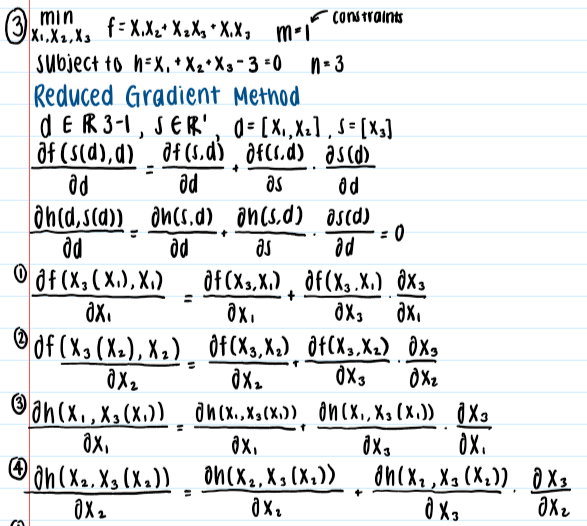 ③ min x₁,x₂,x₃ f=x₁x₂+x₂x₃+x₁x₃ m=1 ← constraints
subject to h=x₁+x₂+x₃-3=0 n=3
Reduced Gradient Method
d ∈ ℝ3-1, s ∈ ℝ', d=[x₁,x₂], s=[x₃]
∂f(s(d),d)/∂d = ∂f(s,d)/∂d + ∂f(s,d)/∂s · ∂s(d)/∂d
∂h(d,s(d))/∂d = ∂h(s,d)/∂d + ∂h(s,d)/∂s · ∂s(d)/∂d = 0
① ∂f(x₃(x₁),x₁)/∂x₁ = ∂f(x₃,x₁)/∂x₁ + ∂f(x₃,x₁)/∂x₃ · ∂x₃/∂x₁
② ∂f(x₃(x₂),x₂)/∂x₂ = ∂f(x₃,x₂)/∂x₂ + ∂f(x₃,x₂)/∂x₃ · ∂x₃/∂x₂
③ ∂h(x₁,x₃(x₁))/∂x₁ = ∂h(x₁,x₃(x₁))/∂x₁ + ∂h(x₁,x₃(x₁))/∂x₃ · ∂x₃/∂x₁
④ ∂h(x₂,x₃(x₂))/∂x₂ = ∂h(x₂,x₃(x₂))/∂x₂ + ∂h(x₂,x₃(x₂))/∂x₃ · ∂x₃/∂x₂